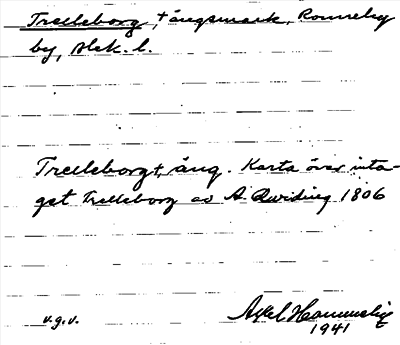 Trelleborg, † ängsmark, Ronneby
by, Blek. l.
Trelleborg †, äng. Karta över inta-
get Trelleborg av A. Qviding 1806
v.g.v.
Axel Hammelig
1941